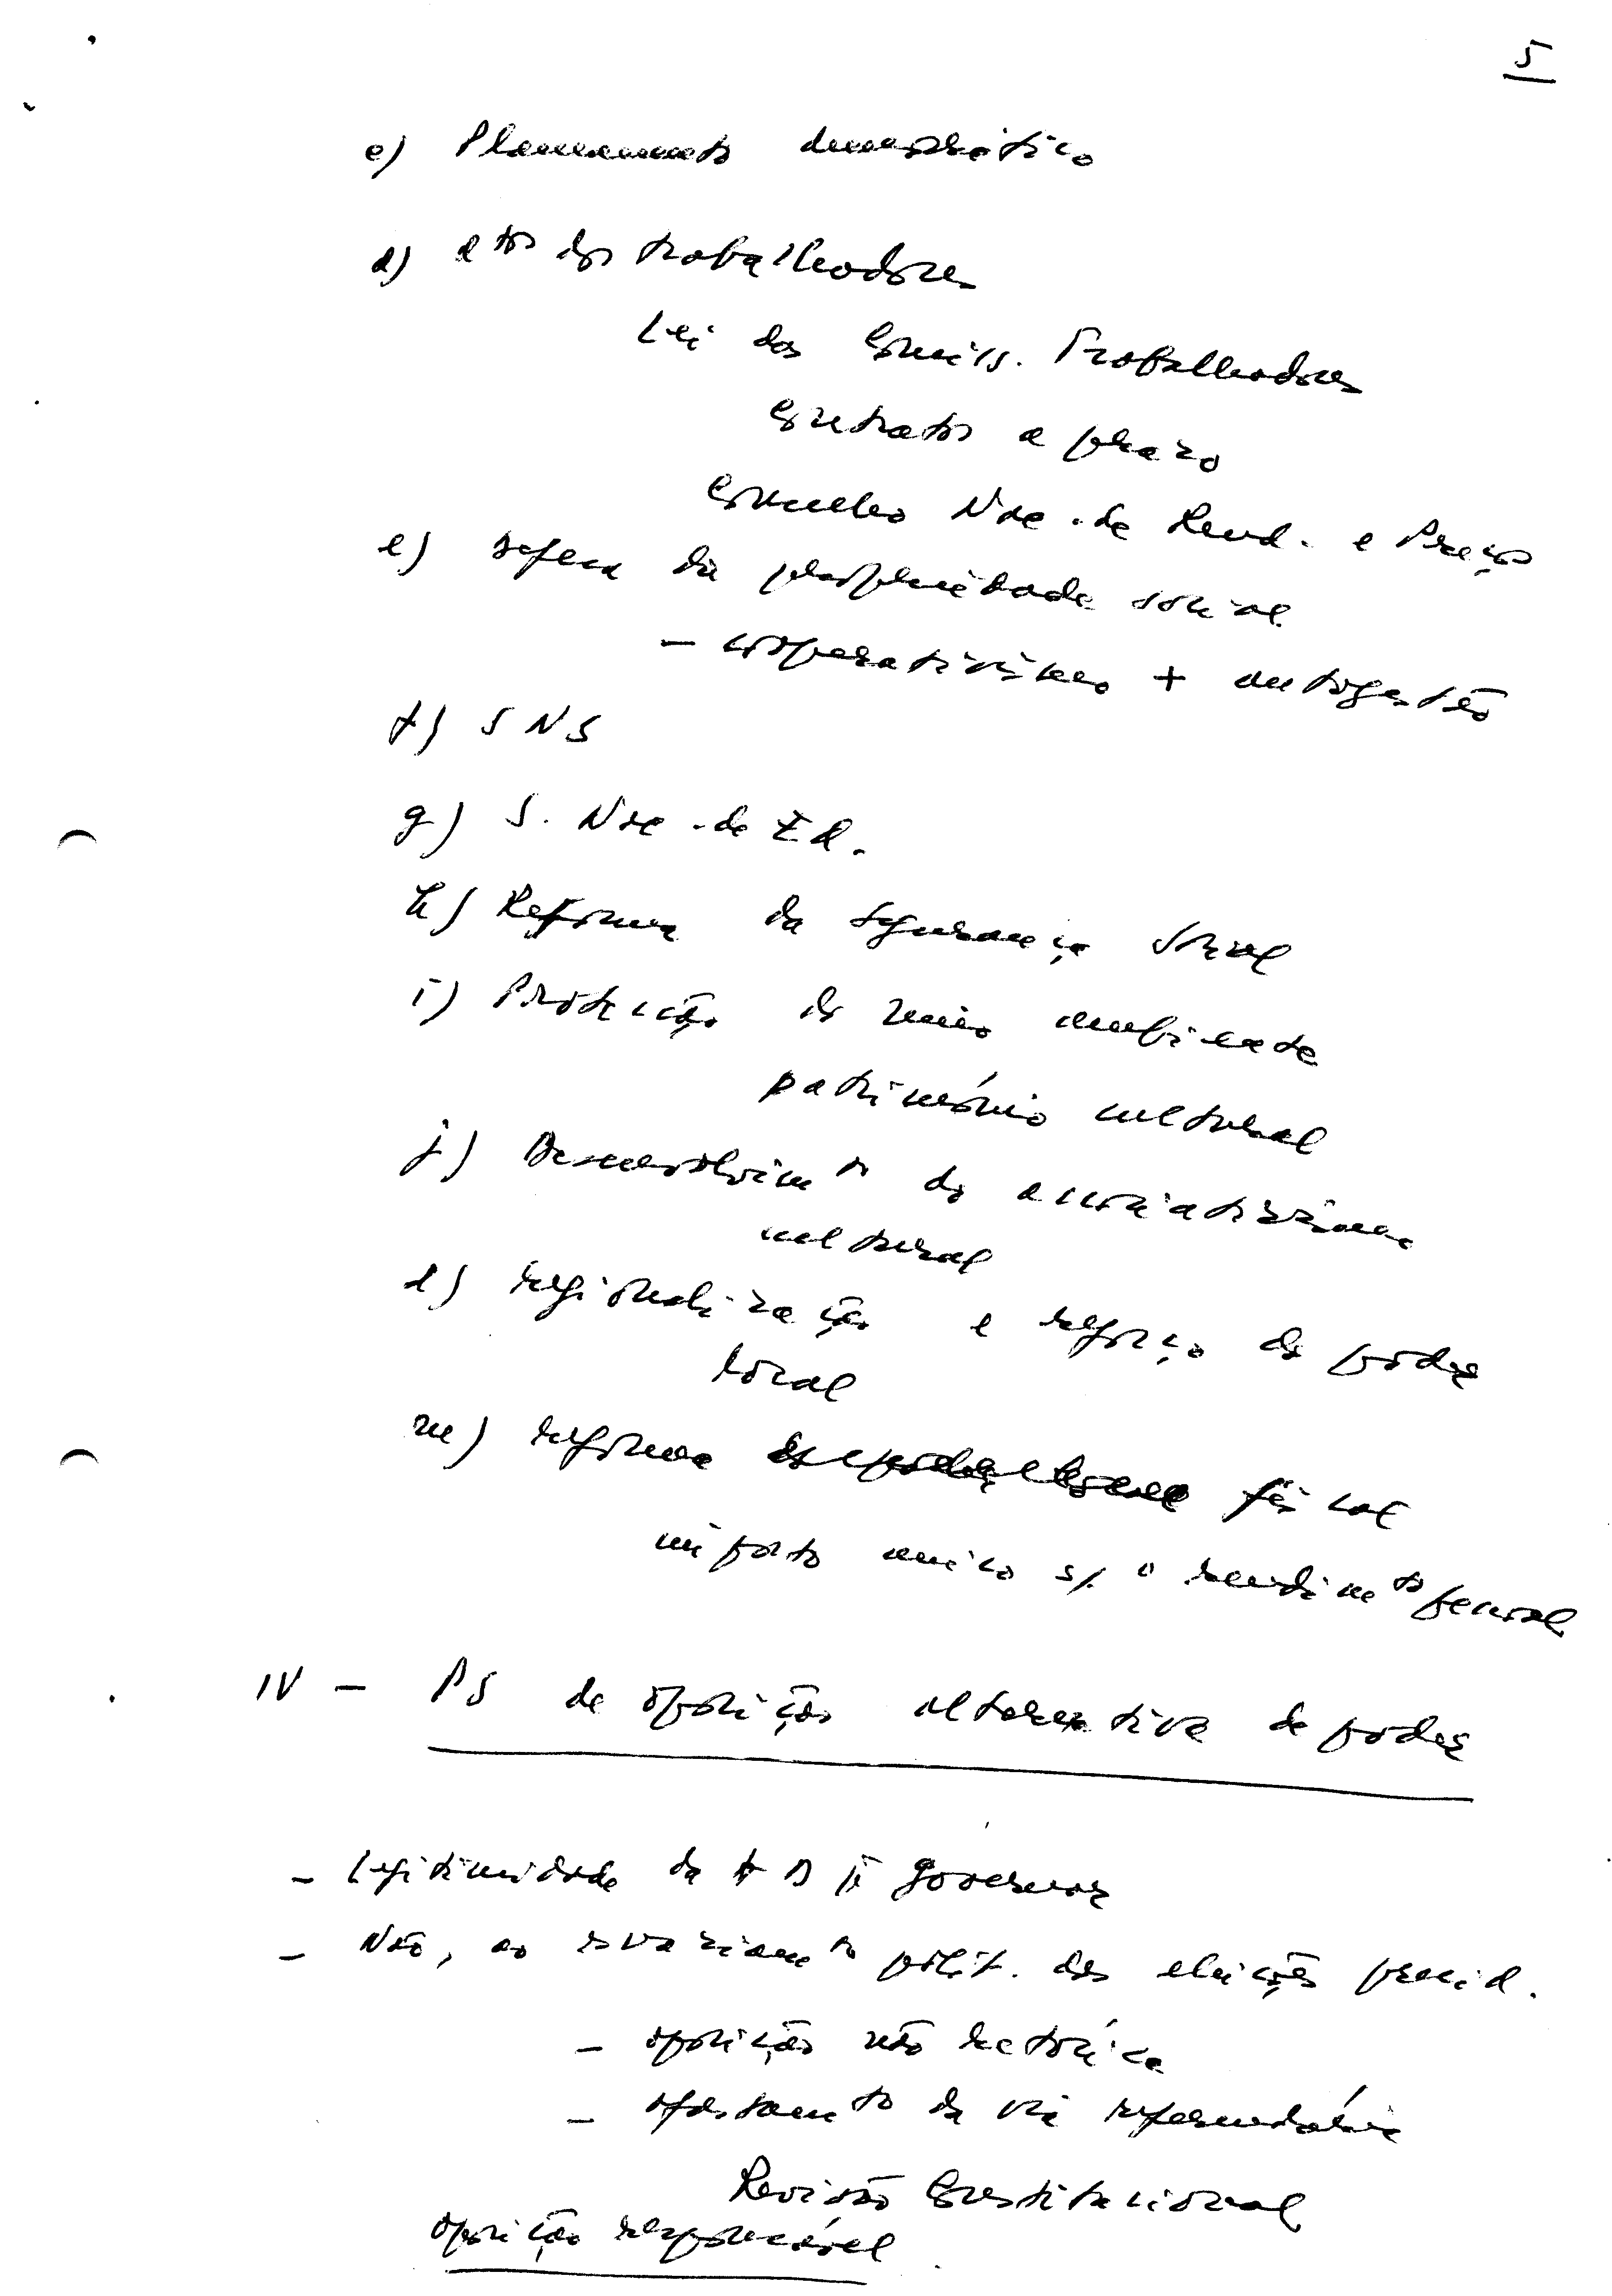 5
c) Planeamento democrático
d) dtos dos trabalhadores
Lei das Comiss. Trabalhadores
Contratos a prazo
Conselho Nac. de Rend. e Preços
e) defesa da propriedade social
- cooperativismo + autogestão
f) SNS
g) S. Nac. de Ed.
h) Reforma da Segurança Social
i) Protecção do meio ambiente
património cultural
j) Desenvolvimto do associativismo
cultural
l) regionalização e reforço do poder
local
m) reforma do poder local fiscal
imposto único s/. o rendimto pessoal
IV - PS de oposição alternativa de poder
- Legitimidade da AD p/ governar
- Não, ao esvaziamto polít. das eleições presid.
- oposição não retórica
- afastamto da via referendária
Revisão Constitucional
oposição responsável